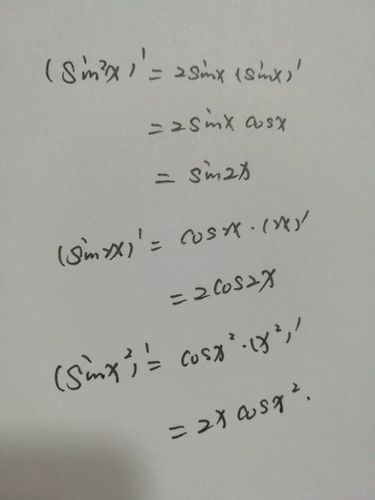 (sin²x)' = 2sinx (sinx)'
= 2sinx cosx
= sin2x
(sin2x)' = cos2x·(2x)'
= 2cos2x
(sinx²)' = cosx²·(x²)'
= 2x cosx².